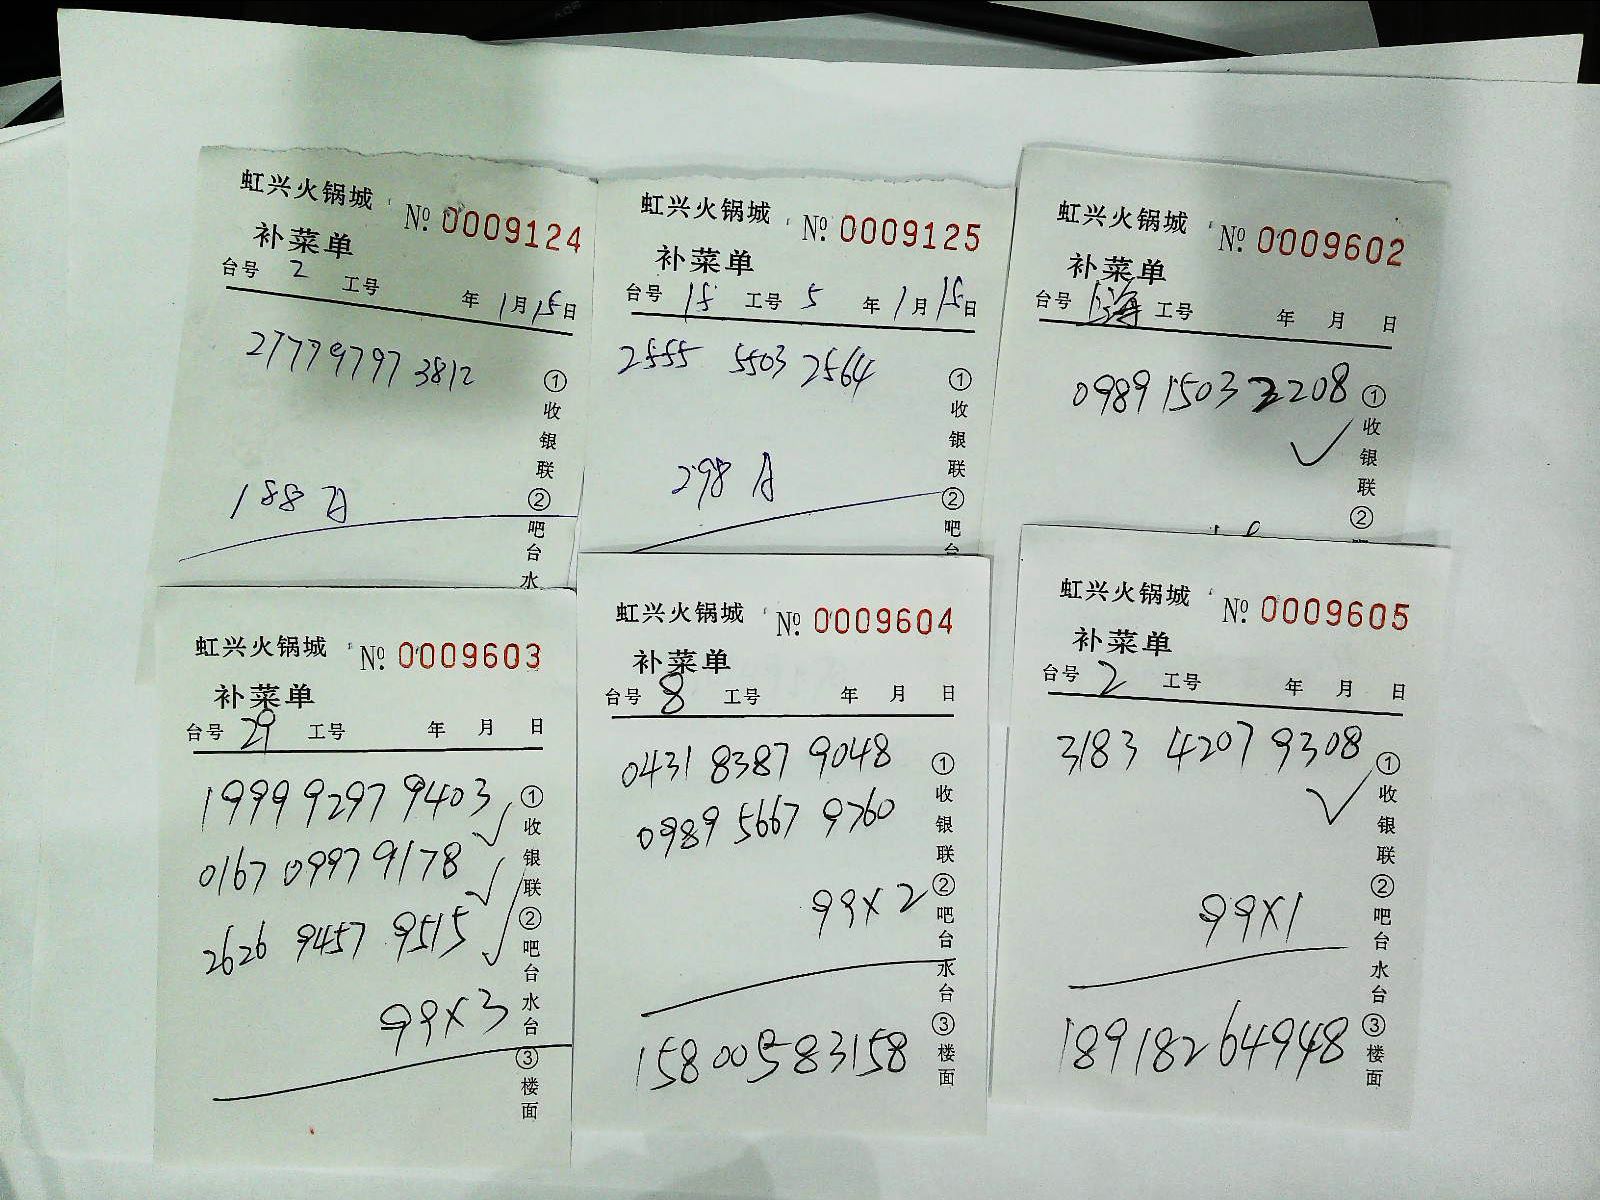 虹兴火锅城 № 0009124
补菜单
台号 2 工号 年 1月15日
2777 9797 3812
188 A
①收银联②吧台水
虹兴火锅城 № 0009125
补菜单
台号 15 工号 5 年 1月15日
2555 5503 2564
298 A
①收银联②吧台
虹兴火锅城 № 0009602
补菜单
台号 工号 年 月 日
0989 1503 2208
①收银联②
虹兴火锅城 № 0009603
补菜单
台号 29 工号 年 月 日
1999 9297 9403
0167 0997 9178
2626 9457 9515
99X3
①收银联②吧台水台③楼面
虹兴火锅城 № 0009604
补菜单
台号 8 工号 年 月 日
0431 8387 9048
0989 5667 9760
99X2
15800583158
①收银联②吧台水台③楼面
虹兴火锅城 № 0009605
补菜单
台号 2 工号 年 月 日
3183 4207 9308
99X1
18918264948
①收银联②吧台水台③楼面